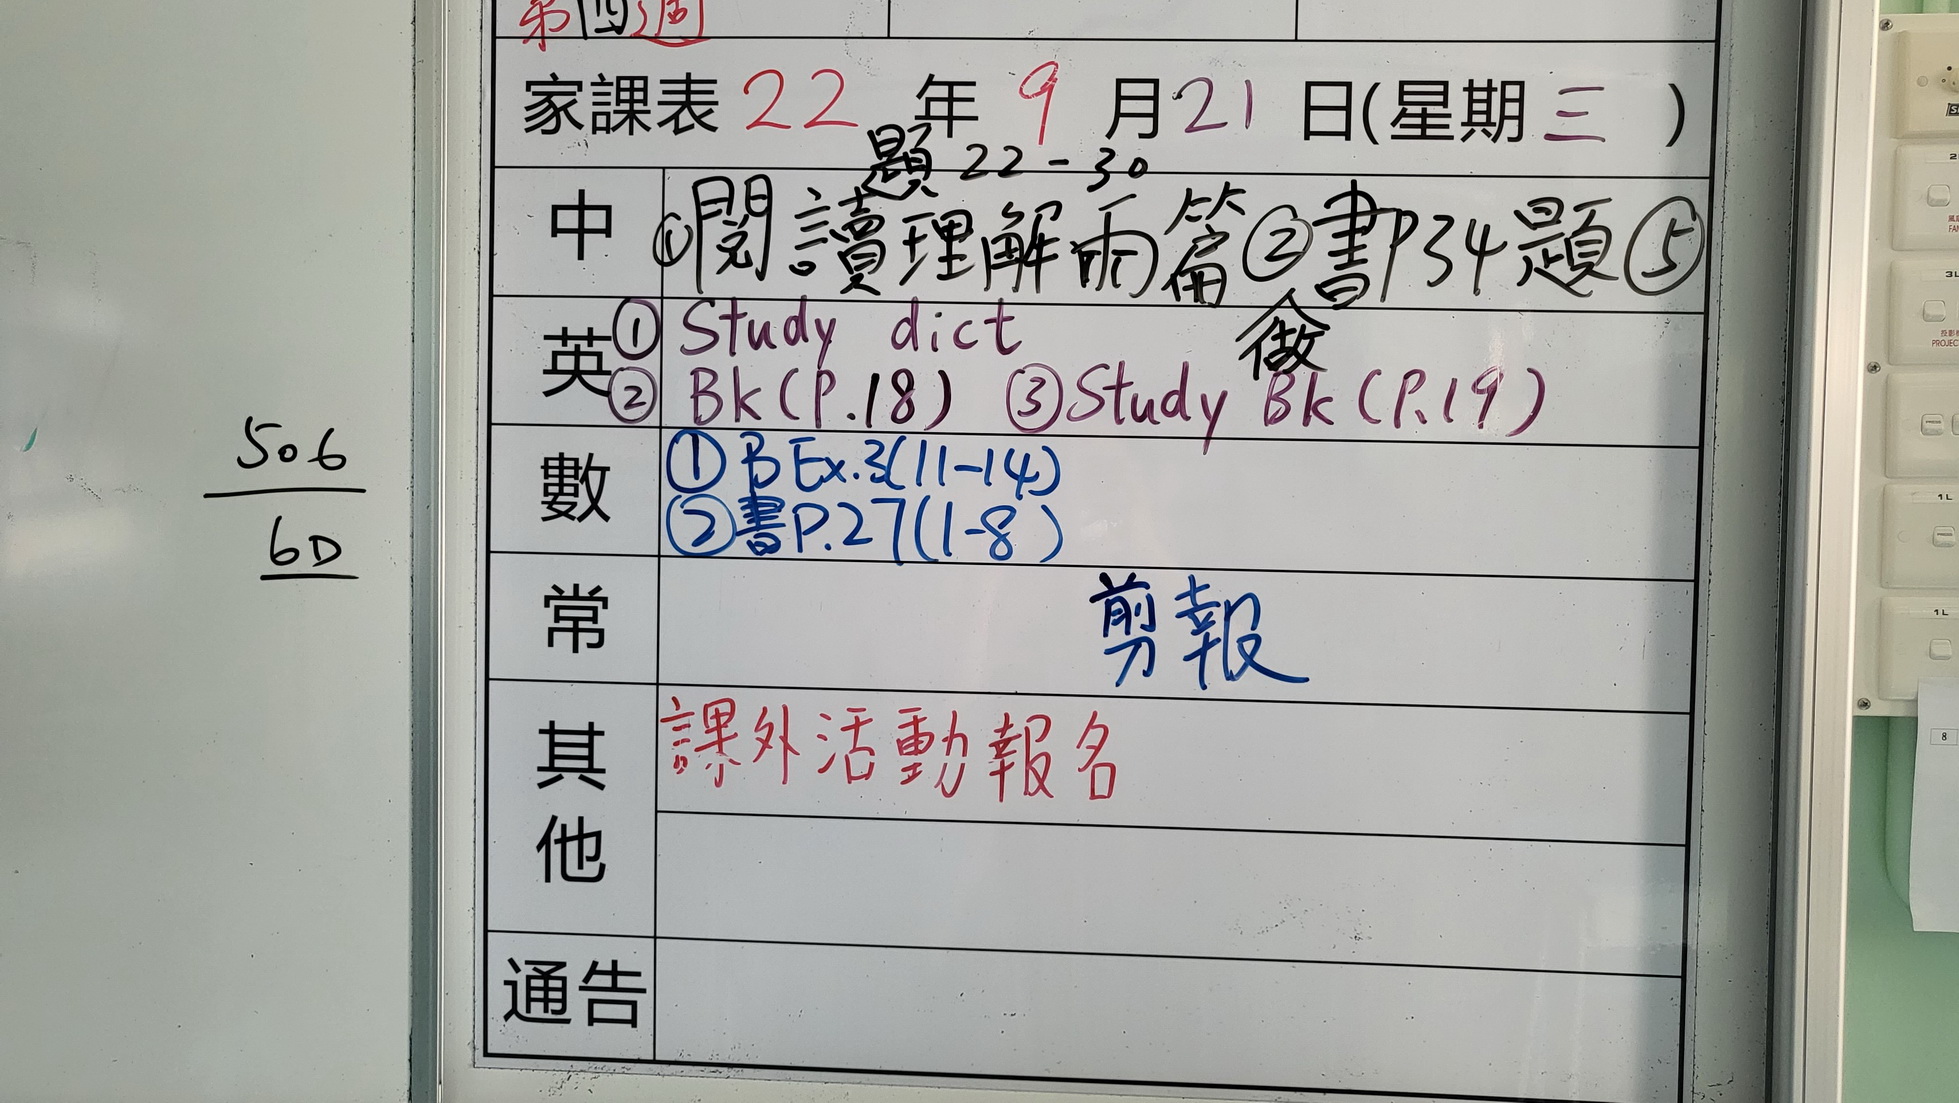 第四週
家課表 22 年 9 月 21 日(星期 三 )
題 22-30
中 ①閱讀理解兩篇 ②書P34題⑤
做
英 ① Study dict
② Bk(P.18) ③ Study Bk (P.19)
數 ① B Ex.3(11-14)
② 書P.27(1-8)
常 剪報
其他 課外活動報名
通告
506
6D